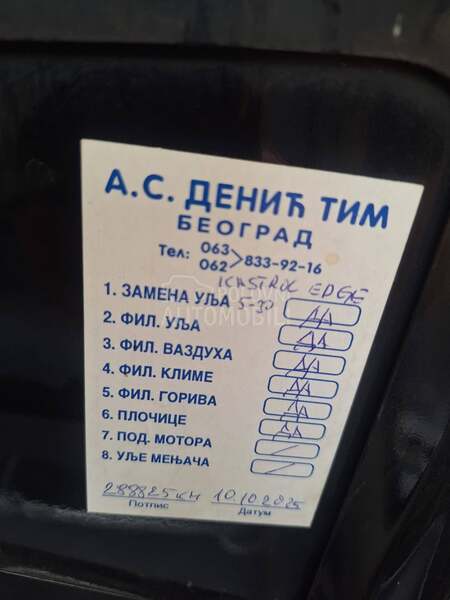 А.С. ДЕНИЋ ТИМ
БЕОГРАД
Тел: 063 062 > 833-92-16
KASTROL EDGE
1. ЗАМЕНА УЉА 5-30 ДА
2. ФИЛ. УЉА ДА
3. ФИЛ. ВАЗДУХА ДА
4. ФИЛ. КЛИМЕ ДА
5. ФИЛ. ГОРИВА ДА
6. ПЛОЧИЦЕ ДА
7. ПОД. МОТОРА /
8. УЉЕ МЕЊАЧА /
288825 KM 10.10.2025
Потпис Датум
POLOVNI
AUTOMOBILI